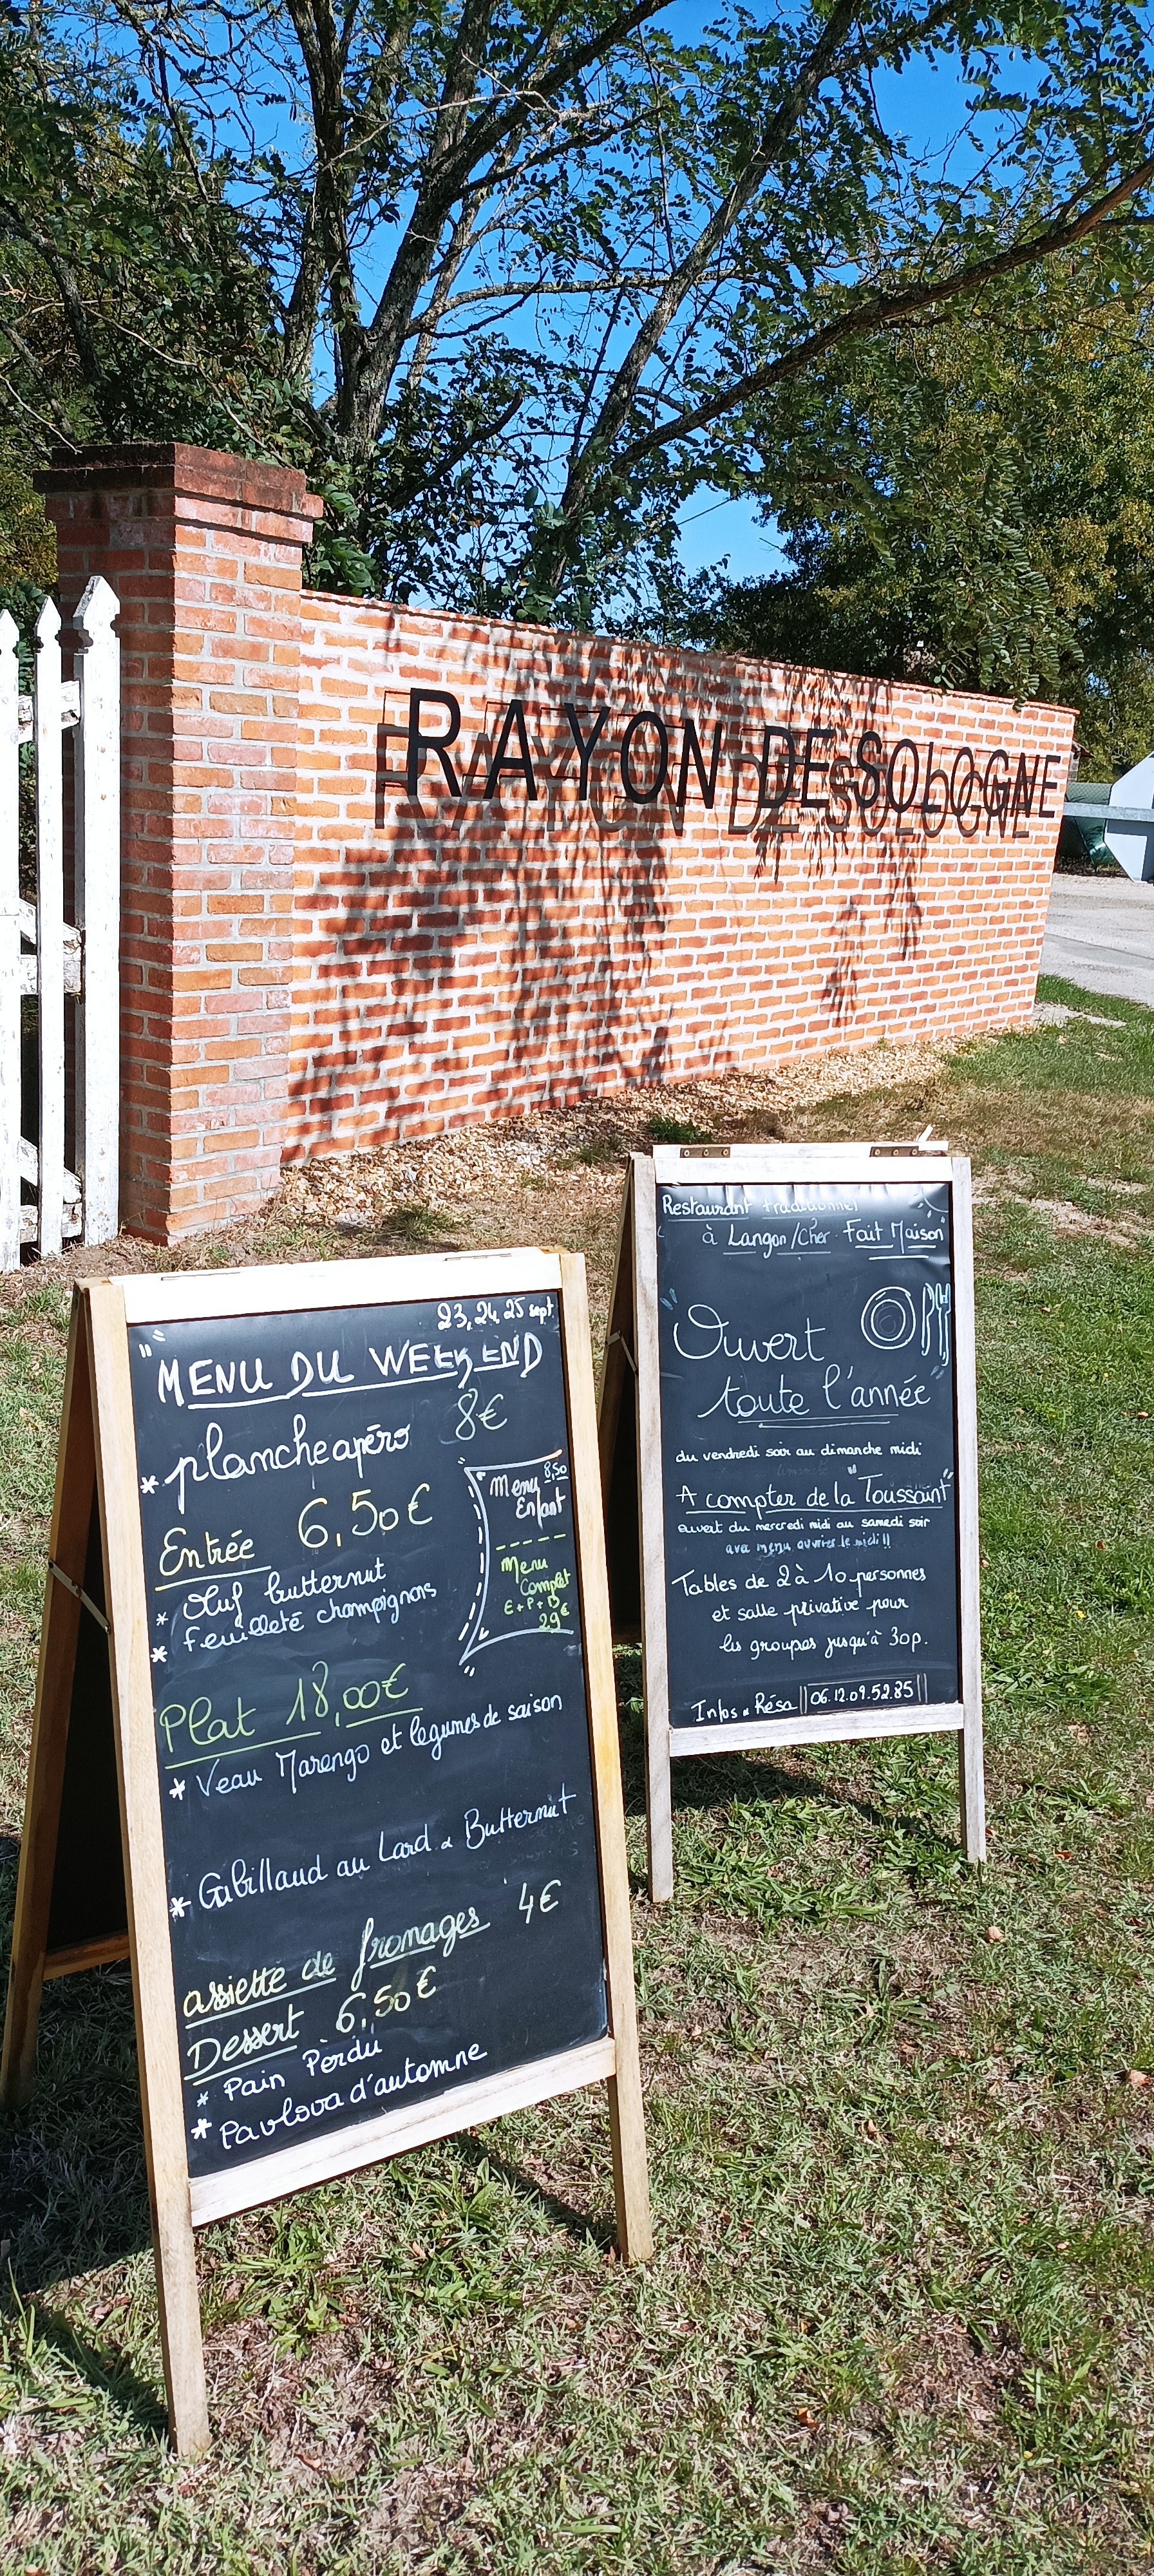 RAYON DE SOLOGNE
23, 24, 25 sept
"MENU DU WEEK END
* planche apéro 8€
Entrée 6,50€
* Oeuf butternut
* feuilleté champignons
Menu 8,50
Enfant
Menu
Complet
E+P+D
29€
Plat 18,00€
* Veau Marengo et légumes de saison
* Cabillaud au Lard & Butternut
assiette de fromages 4€
Dessert 6,50€
* Pain Perdu
* Pavlova d'automne
Restaurant traditionnel
à Langon/Cher Fait Maison
"Ouvert
toute l'année"
du vendredi soir au dimanche midi
A compter de la "Toussaint"
ouvert du mercredi midi au samedi soir
avec menu ouvrier le midi!!
Tables de 2 à 10 personnes
et salle privative pour
les groupes jusqu'à 30p.
Infos & Résa 06.12.09.52.85